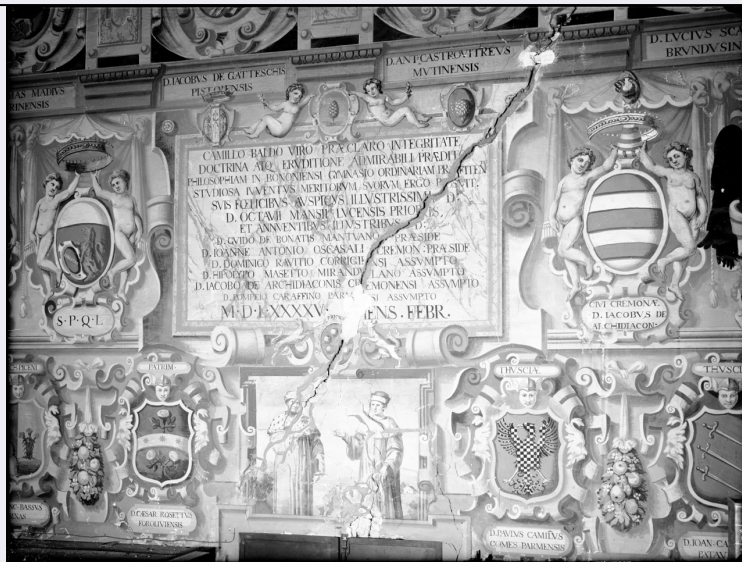 IAS MADIVS
RINENSIS
D. IACOBVS DE GATTESCHIS
PISTORIENSIS
D. ANT. CASTROVITREVS
MVTINENSIS
D. LVCIVS SCA
BRVNDVSIN
CAMILLO BALDO VIRO PRÆCLARO INTEGRITATE
DOCTRINA ATQ. ERVDITIONE ADMIRABILI PRÆDITO
PHILOSOPHIAM IN BONONIENSI GIMNASIO ORDINARIAM
STVDIOSA IVVENTVS MERITORVM SVORVM ERGO
SVIS FŒLICIBVS AVSPICIIS ILLVSTRISSIMI D.
D. OCTAVII MANSII LVCENSIS PRIORIS
ET ANNVENTIBVS ILLVSTRIBVS D.
D. GVIDO DE BONATIS MANTVANO PRÆSIDE
D. IOANNE ANTONIO OSCASALI CREMEN. PRÆSIDE
D. DOMINICO RAVITIO ASSVMPTO
D. HIPPOLYTO MASETTO MIRANDVLANO ASSVMPTO
D. IACOBO DE ARCHIDIACONIS CREMONENSI ASSVMPTO
D. POMPEIO CARAFFINO ASSVMPTO
FEBR.
S·P·Q·L
CIVI CREMONÆ
D. IACOBVS DE
ARCHIDIACON
PATRIM
THVSCIÆ
THVSCI
BASSVS
D. CÆSAR ROSETTVS
FOROLIVIENSIS
D. PAVLVS CAMILLVS
COMES PARMENSIS
D. IOAN. CA
PATAV